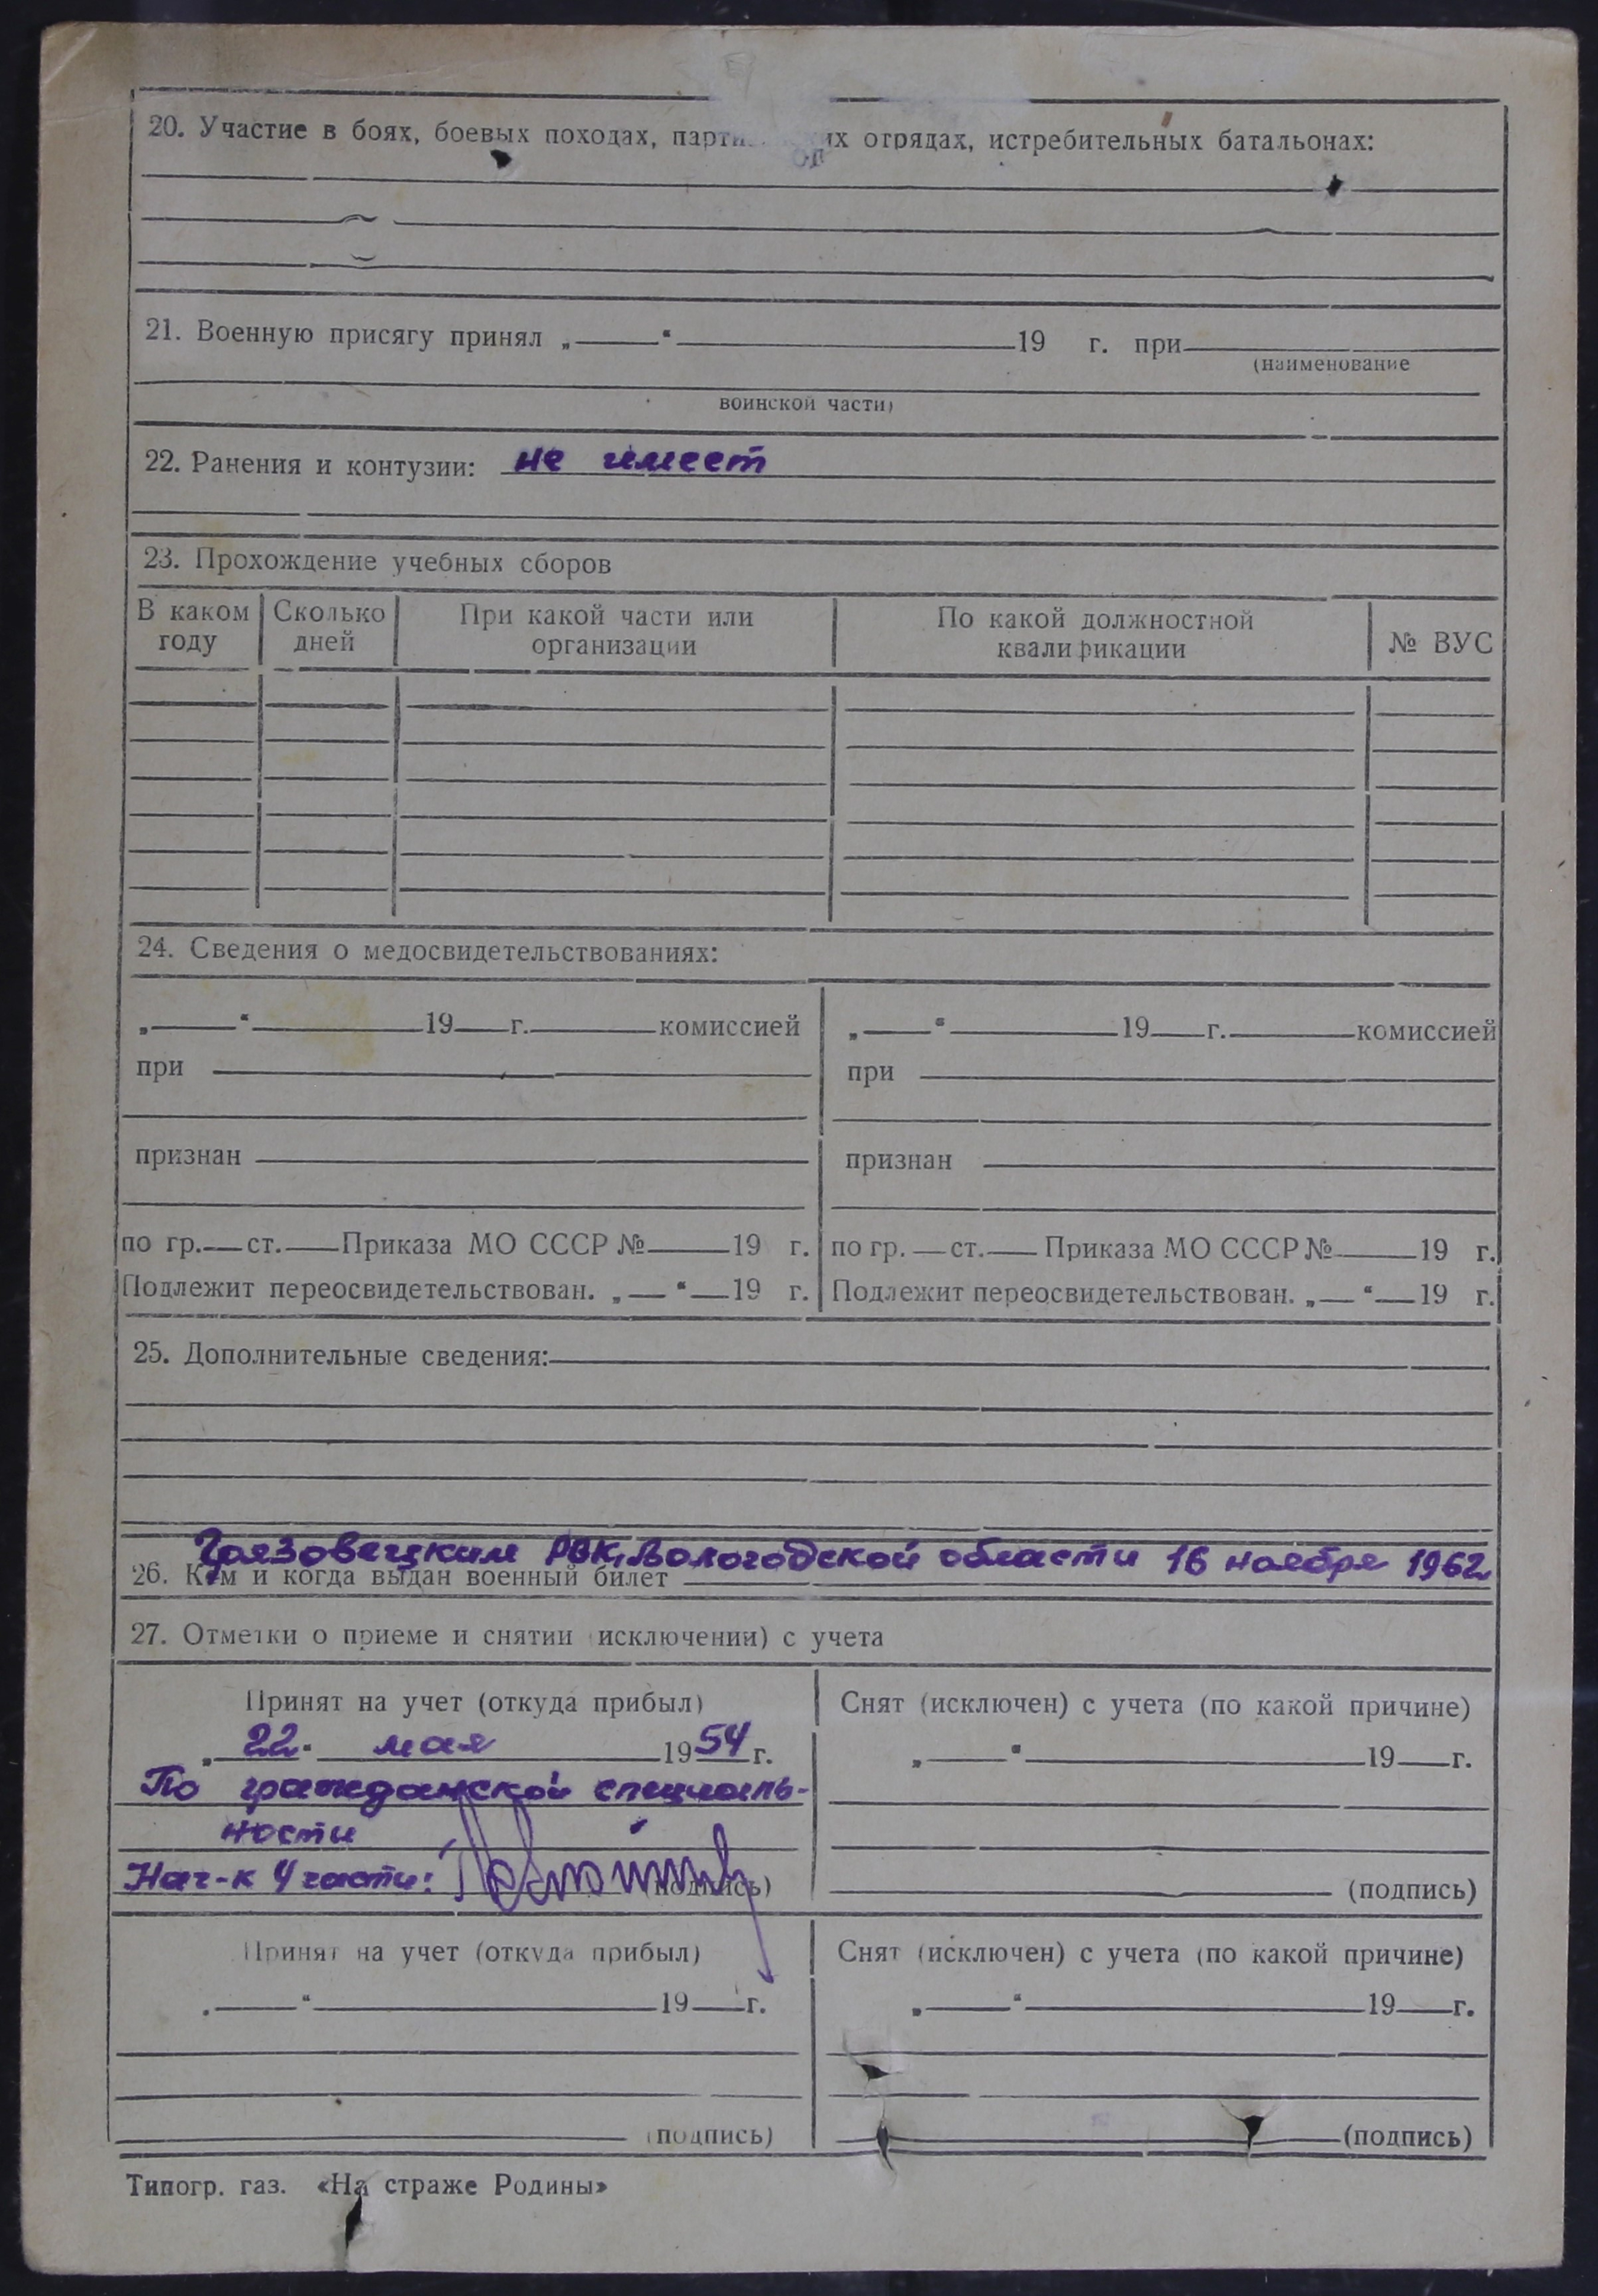 20. Участие в боях, боевых походах, отрядах, истребительных батальонах:
21. Военную присягу принял „ “ 19 г. при
(наименование
воинской части)
22. Ранения и контузии: не имеет
23. Прохождение учебных сборов
В каком году Сколько дней При какой части или организации По какой должностной квалификации № ВУС
24. Сведения о медосвидетельствованиях:
„ “ 19 г. комиссией
при
признан
по гр. ст. Приказа МО СССР № 19 г.
Подлежит переосвидетельствован. „ “ 19 г.
„ “ 19 г. комиссией
при
признан
по гр. ст. Приказа МО СССР № 19 г.
Подлежит переосвидетельствован. „ “ 19 г.
25. Дополнительные сведения:
Грязовецким РВК, Вологодской области 16 ноября 1962
26. Кем и когда выдан военный билет
27. Отметки о приеме и снятии исключении) с учета
Принят на учет (откуда прибыл)
„22“ мая 1954 г.
По гражданской специаль-
ности
Нач-к 4 части: (подпись)
Снят (исключен) с учета (по какой причине)
„ “ 19 г.
(подпись)
Принят на учет (откуда прибыл)
„ “ 19 г.
(подпись)
Снят (исключен) с учета (по какой причине)
„ “ 19 г.
(подпись)
Типогр. газ. «На страже Родины»